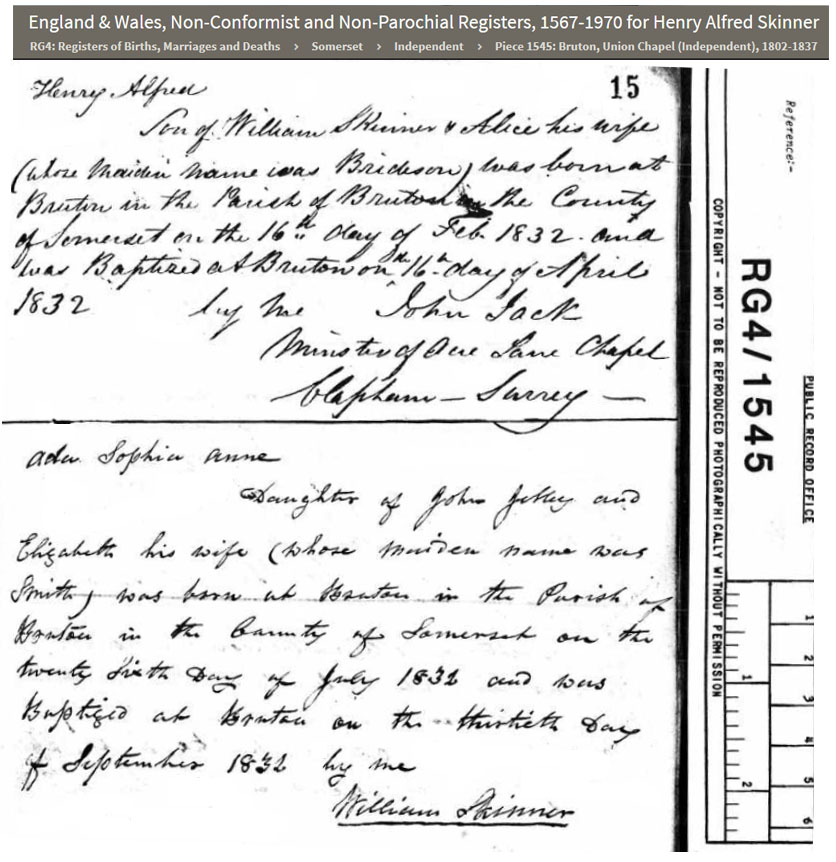 England & Wales, Non-Conformist and Non-Parochial Registers, 1567-1970 for Henry Alfred Skinner
RG4: Registers of Births, Marriages and Deaths › Somerset › Independent › Piece 1545: Bruton, Union Chapel (Independent), 1802-1837
15
Henry Alfred
Son of William Skinner & Alice his wife
(whose maiden name was Brideson) was born at
Bruton in the Parish of Bruton in the County
of Somerset on the 16th day of Feb. 1832. and
was Baptized at Bruton on 16th day of April
1832 by me John Jack
Minister of Acre Lane Chapel
Clapham - Surrey -
Ada Sophia Anne
Daughter of John and
Elizabeth his wife (whose maiden name was
Smith) was born at Bruton in the Parish of
Bruton in the County of Somerset on the
twenty Sixth Day of July 1832 and was
Baptized at Bruton on the thirtieth Day
of September 1832 by me
William Skinner
Reference:-
RG4/1545
PUBLIC RECORD OFFICE
COPYRIGHT - NOT TO BE REPRODUCED PHOTOGRAPHICALLY WITHOUT PERMISSION
1
2
1
2
3
4
5
6